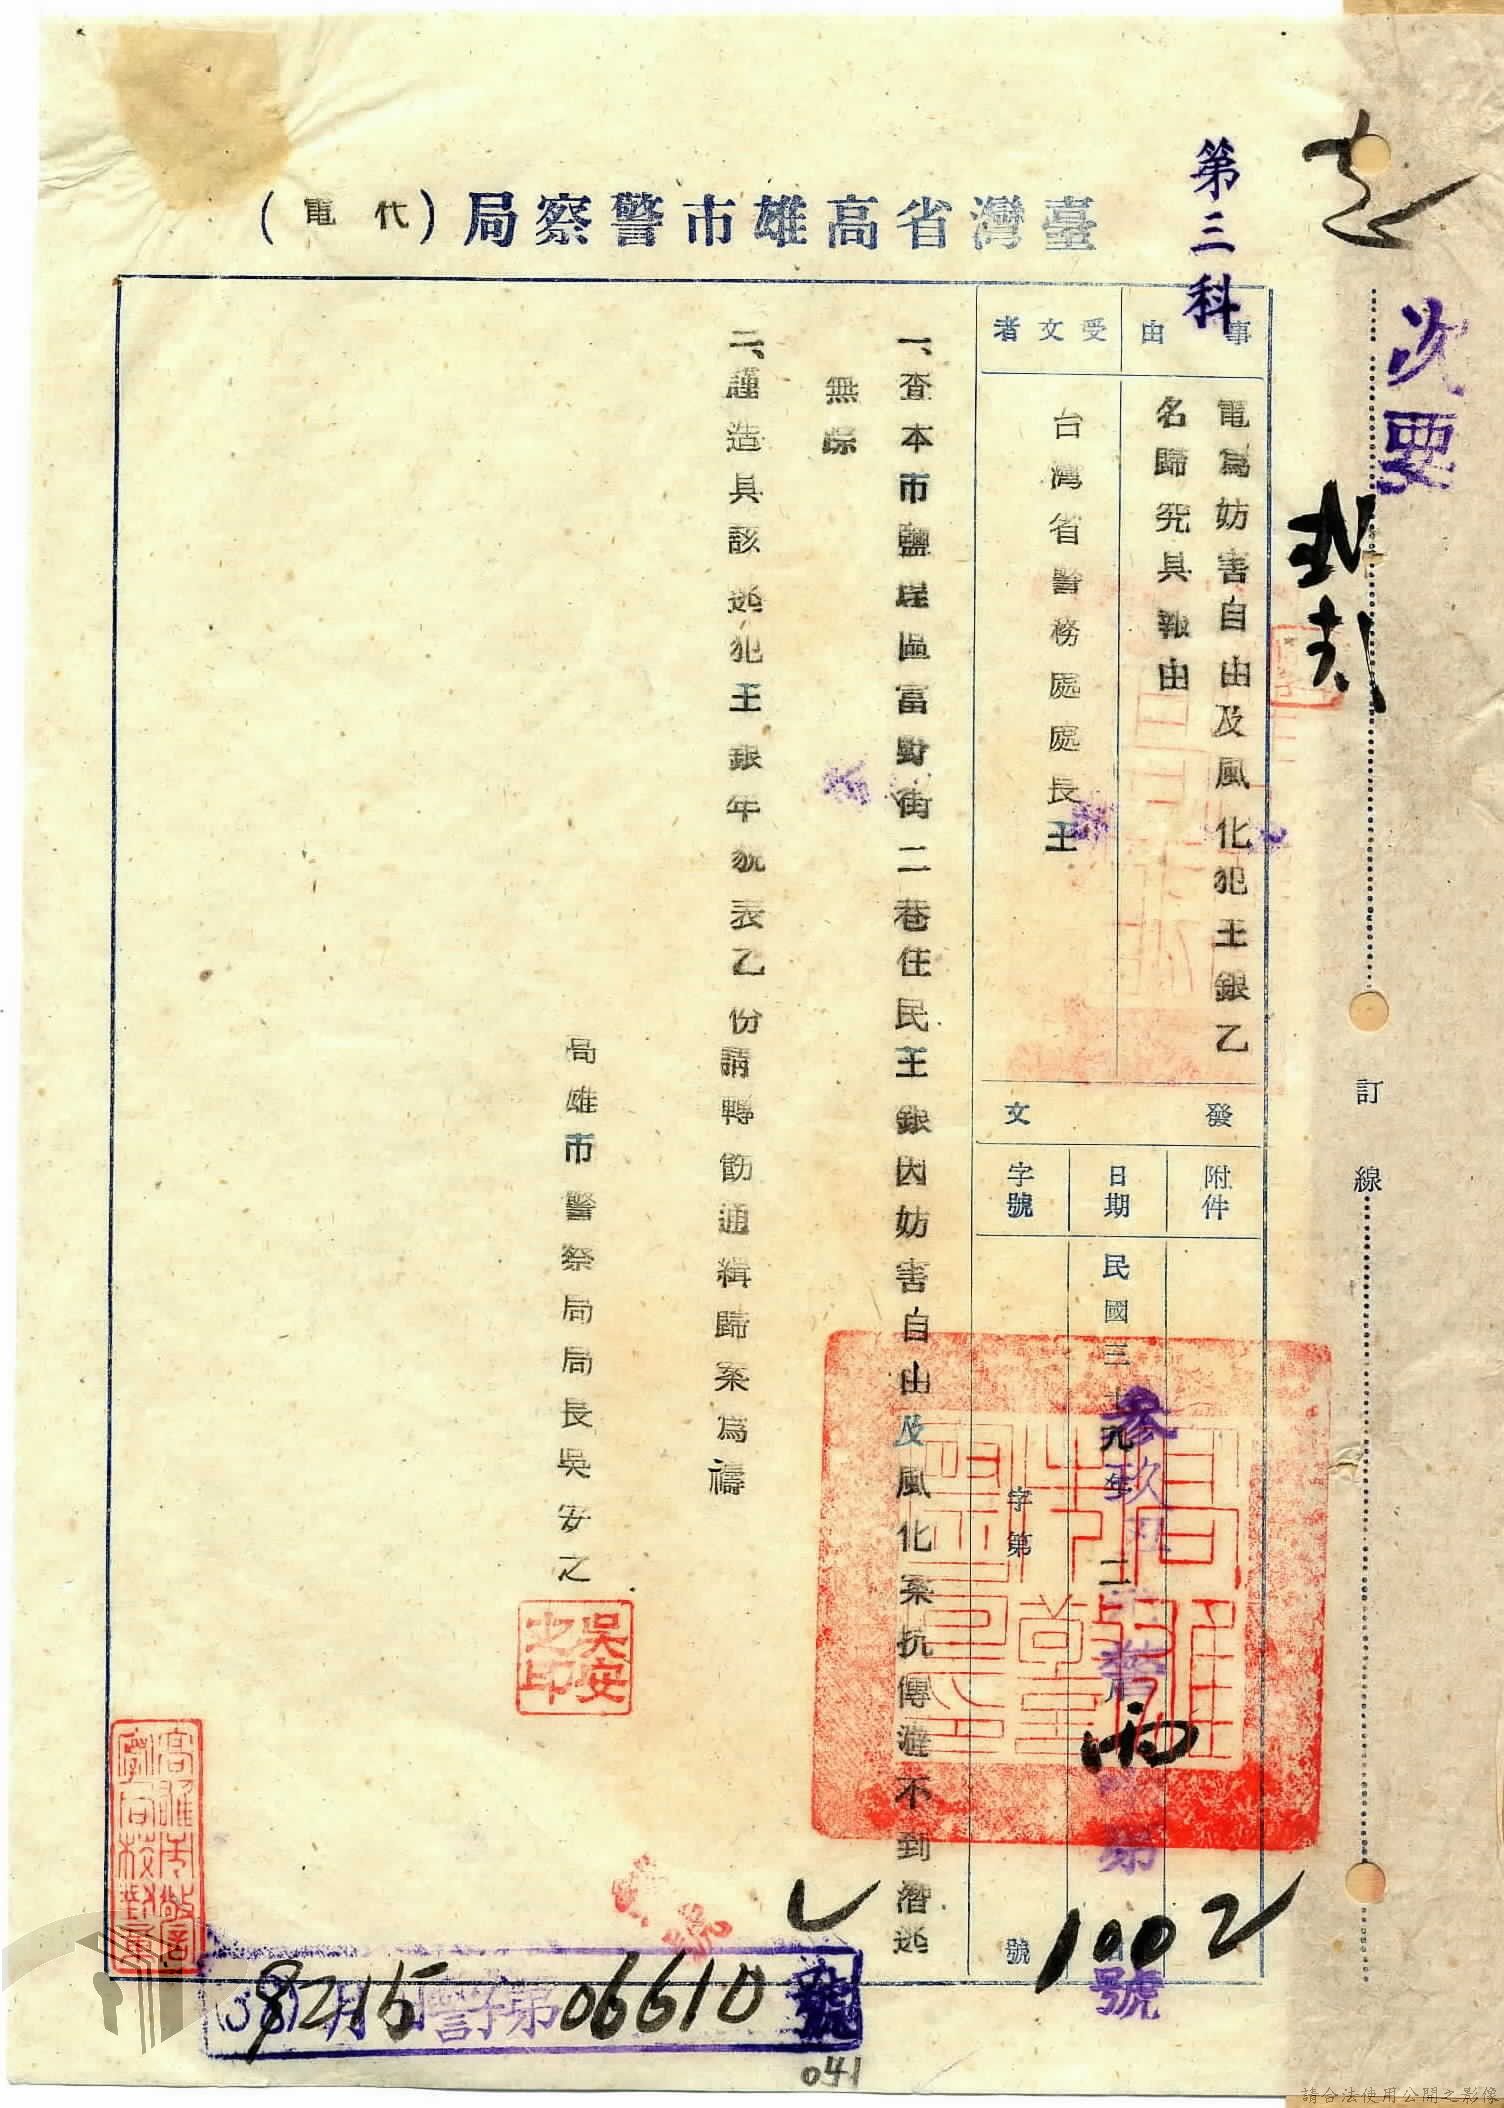 次要
訂線
第三科
臺灣省高雄市警察局(代電)
事由
電為妨害自由及風化犯王銀乙
名歸究具報由
受文者
台灣省警務處處長王
發文
附件
日期
民國三十九年二月
字號
字第
號
1002
號
一、查本市鹽埕區富野街二巷住民王銀因妨害自由及風化案抗傳避不到潛逃
無踪
二、謹造具該逃犯王銀年貌表乙份請轉飭通緝歸案為禱
高雄市警察局局長吳安之
吳安之印
06610
號
041
請合法使用公開之影像